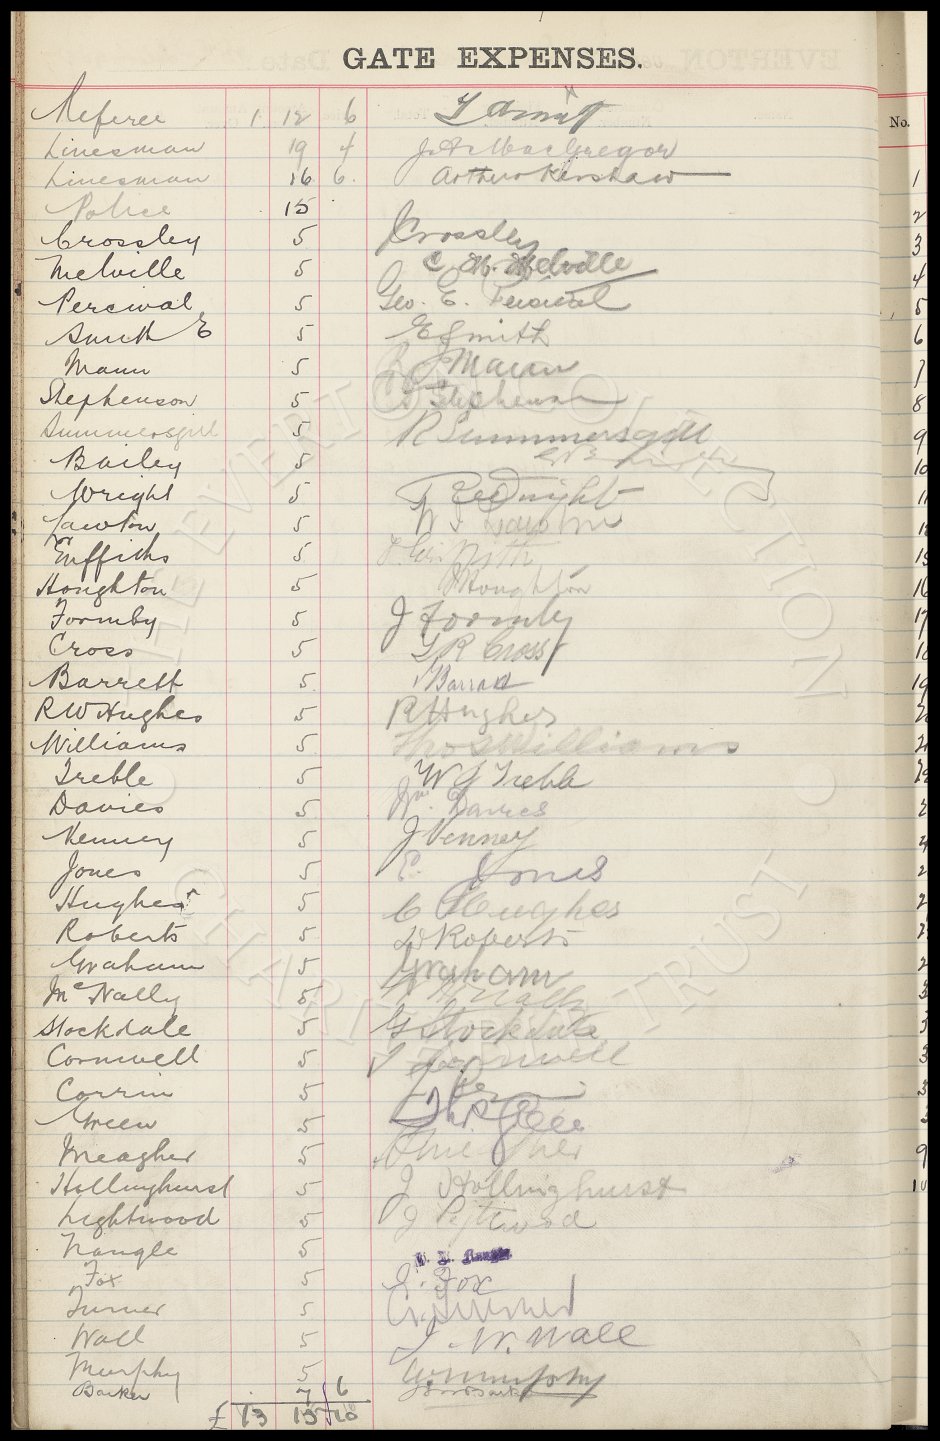 GATE EXPENSES.
No.
Referee 1 12 6
Linesman 19 4 J. A. MacGregor
Linesman 16 6. Arthur Kershaw
Police 15
Crossley 5 J Crossley
Melville 5 C. H. Melville
Percival 5 Geo. E. Percival
Smith E 5 E Smith
Mann 5 Mann
Stephenson 5 Stephenson
Summersgill 5 R Summersgill
Bailey 5
Wright 5 Wright
Lawton 5 W Lawton
Griffiths 5 Griffith
Houghton 5 Houghton
Formby 5 J Formby
Cross 5 G R Cross
Barrett 5 Barratt
R W Hughes 5 R Hughes
Williams 5 Thos Williams
Treble 5 W J Treble
Davies 5 Wm. Davies
Kenney 5 J Kenney
Jones 5 E. Jones
Hughes 5 C Hughes
Roberts 5 W Roberts
Graham 5 Graham
McNally 5 McNally
Stockdale 5 G Stockdale
Cornwell 5 Cornwell
Corrin 5
Green 5
Meagher 5
Hollinghurst 5 J Hollinghurst
Lightwood 5 J Lightwood
Nangle 5
Fox 5 J. Fox
Turner 5 Turner
Wall 5 J. W. Wall
Murphy 5 W Murphy
Barker 7 6 Barker
£ 13 15 10
THE EVERTON COLLECTION CHARITABLE TRUST